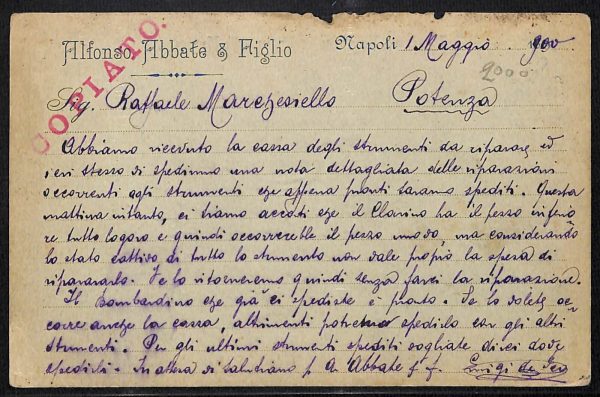 Alfonso Abbate & Figlio
Napoli 1 Maggio 900
2000
COPIATO
Sig. Raffaele Marchesiello Potenza
Abbiamo ricevuto la cassa degli strumenti da riparare ed
ieri stesso vi spedimmo una nota dettagliata delle riparazioni
occorrenti agli strumenti che appena pronti saranno spediti. Questa
mattina intanto, ci siamo accorti che il Clarino ha il pezzo inferio
re tutto logoro e quindi occorrerebbe il pezzo nuovo, ma considerando
lo stato cattivo di tutto lo strumento non vale proprio la spesa di
ripararlo. Ve lo ritorneremo quindi senza farci la riparazione.
Il Bombardino che già ci spediste è pronto. Se lo volete oc
corre anche la cassa, altrimenti potremo spedirlo con gli altri
strumenti. Per gli ultimi strumenti spediti vogliate dirci dove
spedirli. In attesa vi salutiamo p A. Abbate f. f. Luigi de